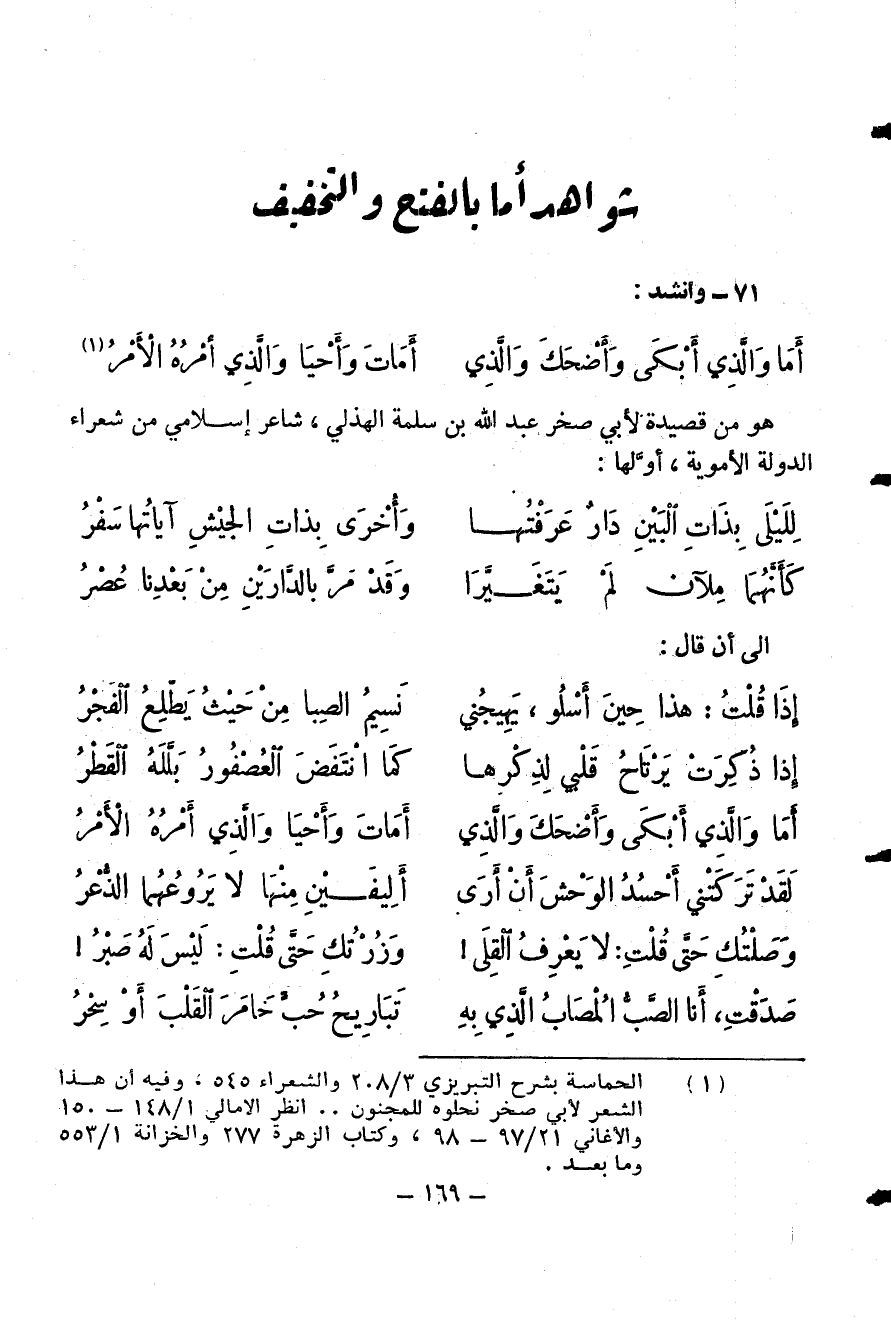 شواهد أما بالفتح والتخفيف
٧١ ــ وأنشد :
أَمَا وَالَّذِي أَبْكَى وَأَضْحَكَ وَالَّذِي أَمَاتَ وَأَحْيَا وَالَّذِي أَمْرُهُ الْأَمْرُ(١)
هو من قصيدة لأبي صخر عبد الله بن سلمة الهذلي ، شاعر إسـلامي من شعراء
الدولة الأموية ، أوّلها :
لِلَيْلَى بِذَاتِ الْبَيْنِ دَارٌ عَرَفْتُهـا وَأُخْرَى بِذاتِ الجَيْشِ آيَاتُها سَفْرُ
كَأَنَّهُمَا مِلآن لَمْ يَتَغَـيَّرَا وَقَدْ مَرَّ بالدَّارَيْنِ مِنْ بَعْدِنا عُصْرُ
الى أن قال :
إِذَا قُلْتُ : هذا حِينَ أَسْلُو ، يَهِيجُنِي نَسِيمُ الصِبا مِنْ حَيْثُ يَطَّلِعُ الْفَجْرُ
إذا ذُكِرَتْ يَرْتَاحُ قَلْبي لِذِكْرِهـا كَمَا انْتَفَضَ الْعُصْفُورُ بَلَّلَهُ الْقَطْرُ
أَمَا وَالَّذِي أَبْكَى وَأَضْحَكَ وَالَّذِي أَمَاتَ وَأَحْيَا وَالَّذِي أَمْرُهُ الْأَمْرُ
لَقَدْ تَرَكَتْنِي أَحْسُدُ الوَحْشَ أَنْ أَرَى أَلِيفَـيْنِ مِنْهَا لا يَرُوعُهُما الذُّعْرُ
وَصَلْتُكِ حَتَّى قُلْتِ: لا يَعْرِفُ الْقِلَى ! وَزُرْتُكِ حَتَّى قُلْتِ : لَيْسَ لَهُ صَبْرُ !
صَدَقْتِ، أَنا الصَّبُّ الْمُصَابُ الَّذِي بِهِ تَبَارِيحُ حُبٍّ خَامَرَ الْقَلْبَ أَوْ سِحْرُ
(١) الحماسة بشرح التبريزي ٢٠٨/٣ والشعراء ٥٤٥ ، وفيه أن هـذا
الشعر لأبي صخر نحلوه للمجنون .. انظر الامالي ١٤٨/١ ــ ١٥٠
والأغاني ٩٧/٢١ ــ ٩٨ ، وكتاب الزهرة ٢٧٧ والخزانة ٥٥٣/١
وما بعـد .
ــ ١٦٩ ــ